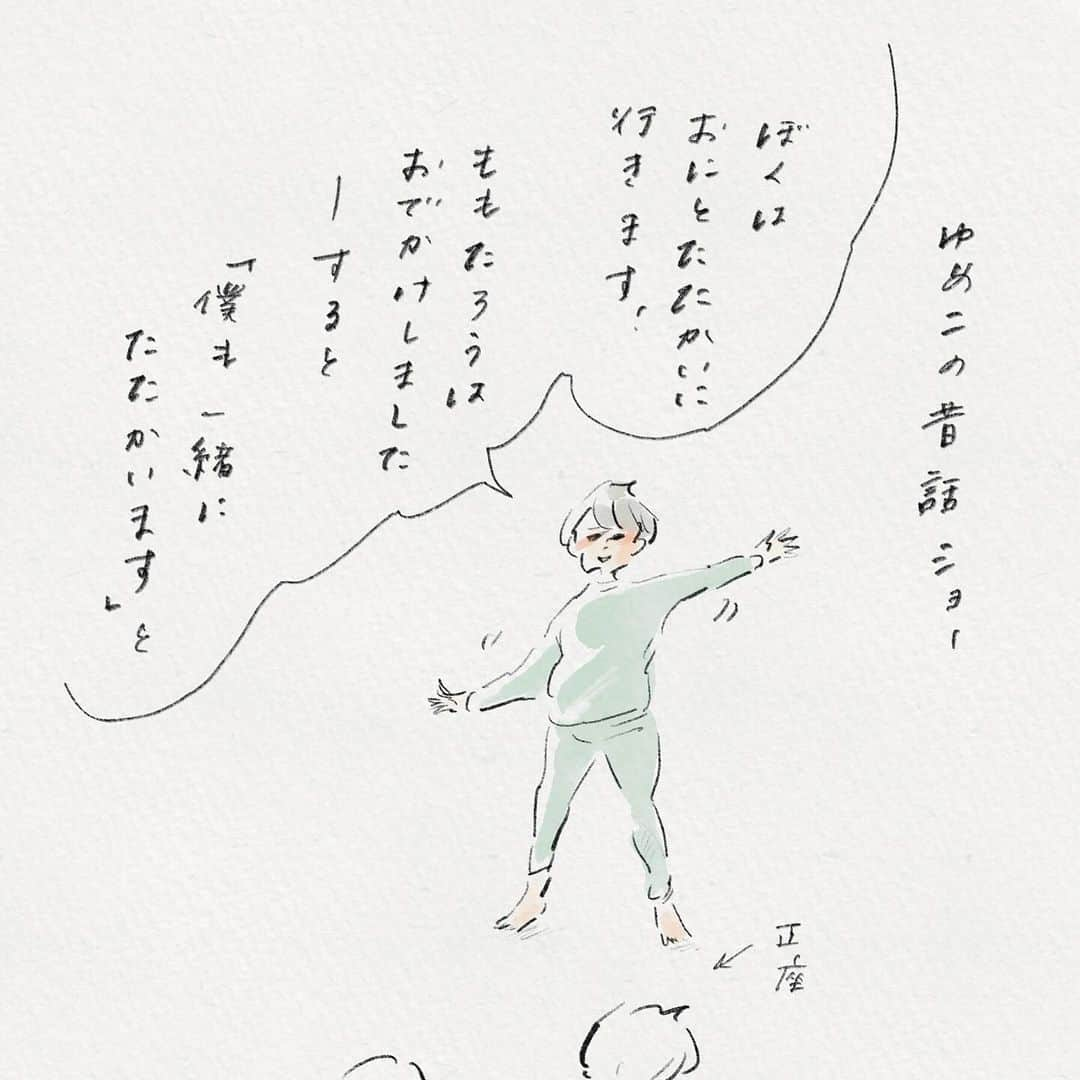 ゆめこの昔話ショー
ぼくは
おにとたたかいに
行きます!
ももたろうは
おでかけしました
ーすると
「僕も一緒に
たたかいます」と
正座